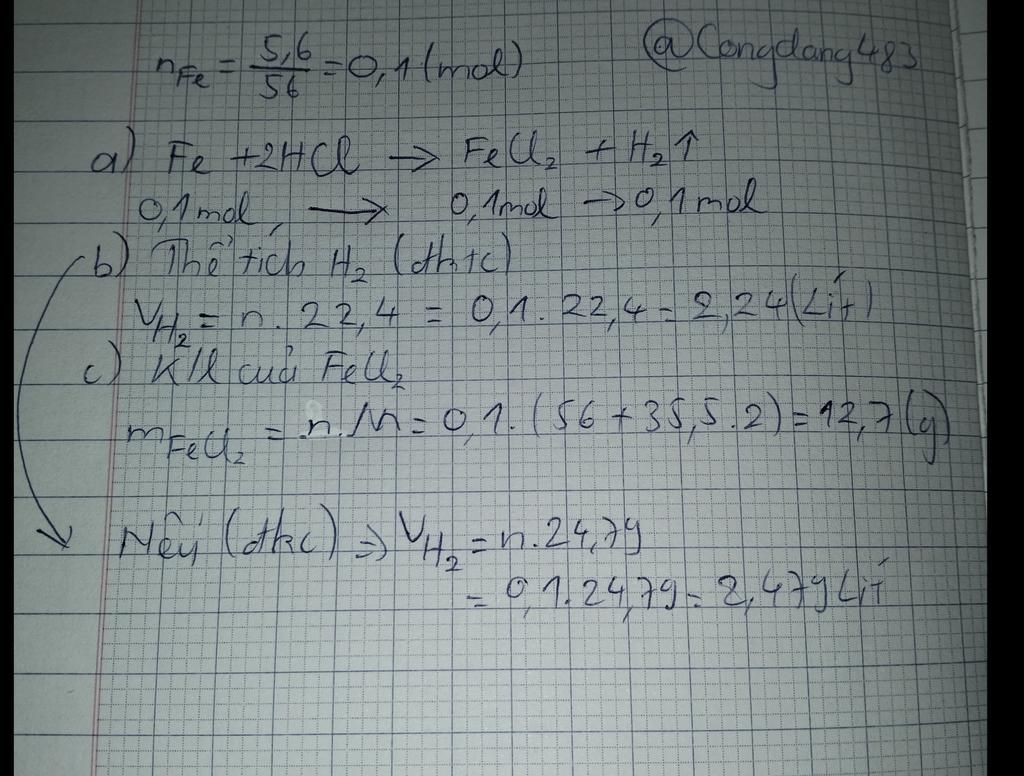 @Congdang483
nFe = 5,6/56 = 0,1 (mol)
a) Fe + 2HCl → FeCl₂ + H₂↑
0,1mol → 0,1mol → 0,1mol
b) Thể tích H₂ (đktc)
VH₂ = n. 22,4 = 0,1. 22,4 = 2,24 (Lít)
c) Kll của FeCl₂
mFeCl₂ = n.M = 0,1. (56 + 35,5.2) = 12,7 (g)
Nếu (đkc) => VH₂ = n.24,79
= 0,1.24,79 = 2,479 Lít